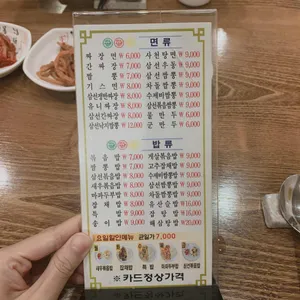 면 류
짜 장 면 ₩ 6,000 사 천 탕 면 ₩ 9,000
간 짜 장 ₩ 7,000 삼 선 우 동 ₩ 9,000
짬 뽕 ₩ 7,000 삼 선 짬 뽕 ₩ 9,000
기 스 면 ₩ 8,000 차돌짬뽕 ₩ 9,000
삼선쟁반짜장 ₩ 8,000 수제비짬뽕 ₩ 9,000
유니짜장 ₩ 8,000 삼선볶음짬뽕 ₩ 9,000
삼선간짜장 ₩ 8,000 물 만 두 ₩ 6,000
삼선낙지짬뽕 ₩ 12,000 군 만 두 ₩ 6,000
밥 류
볶 음 밥 ₩ 7,000 게살볶음밥 ₩ 9,000
짬 뽕 밥 ₩ 7,000 고추잡채밥
삼선볶음밥 ₩ 8,000
새우볶음밥 ₩ 8,000 삼선짬뽕밥
마파두부밥 ₩ 8,000 차돌짬뽕밥
잡 채 밥 유 산 슬 밥
잡 탕 밥
송 이 밥
요일할인메뉴 균일가 7,000
새우볶음밥 잡채밥 마파두부밥 삼선볶음밥
※ 카드정상가격